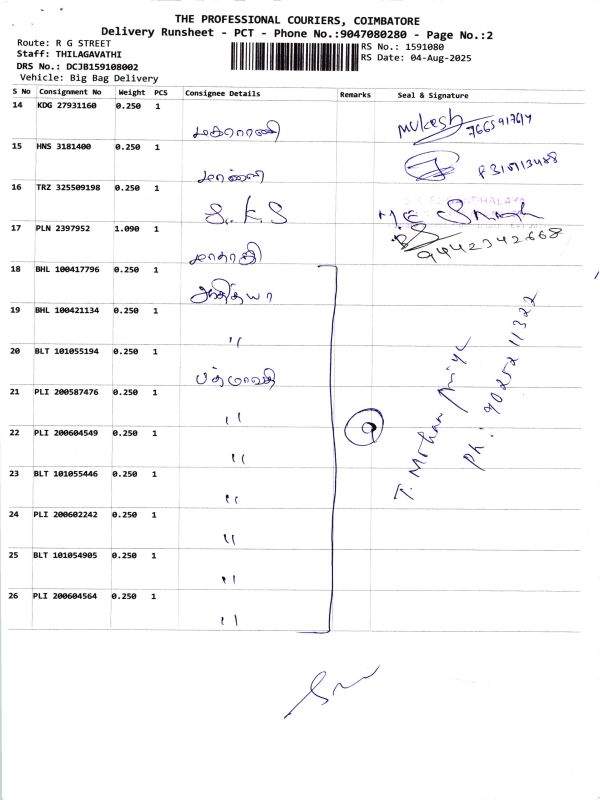 THE PROFESSIONAL COURIERS, COIMBATORE
Delivery Runsheet - PCT - Phone No.:9047080280 - Page No.:2
Route: R G STREET
RS No.: 1591080
Staff: THILAGAVATHI
RS Date: 04-Aug-2025
DRS No.: DCJB159108002
Vehicle: Big Bag Delivery
S No Consignment No Weight PCS Consignee Details Remarks Seal & Signature
14 KDG 27931160 0.250 1
மகாராணி Mukesh
15 HNS 3181400 0.250 1
16 TRZ 325509198 0.250 1
S.K.S
17 PLN 2397952 1.090 1
9442342668
18 BHL 100417796 0.250 1
ஆதித்யா
19 BHL 100421134 0.250 1
"
20 BLT 101055194 0.250 1
பத்மாவதி
21 PLI 200587476 0.250 1
"
22 PLI 200604549 0.250 1
9
"
23 BLT 101055446 0.250 1
"
24 PLI 200602242 0.250 1
"
25 BLT 101054905 0.250 1
"
26 PLI 200604564 0.250 1
"
T. Mohana Priya
Ph: 9025211322